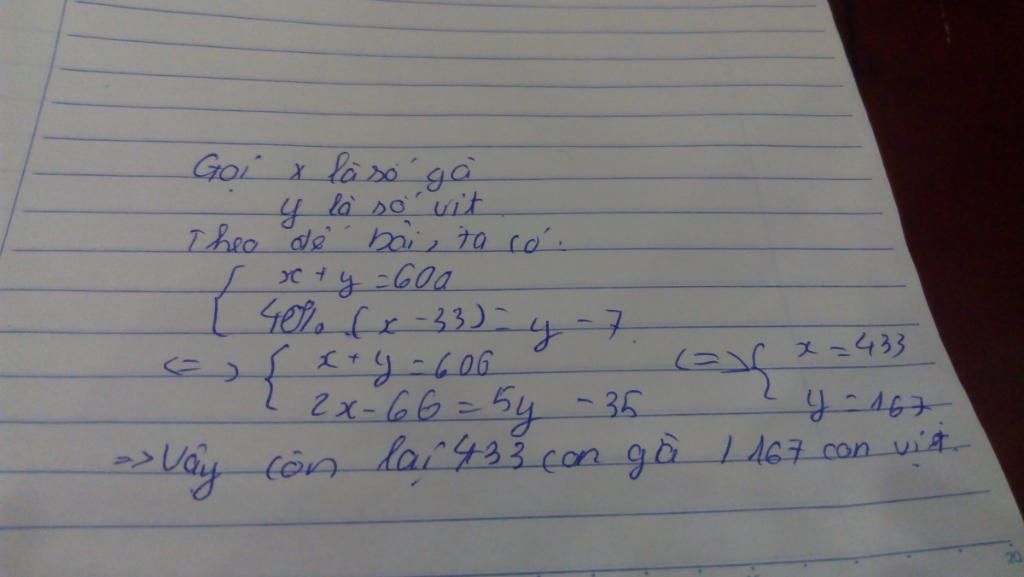 Gọi x là số gà
y là số vịt
Theo đề bài, ta có.
x + y = 600
40%.(x - 33) = y - 7
<=> x + y = 600 <=> x = 433
2x - 66 = 5y - 35 y = 167
=> Vậy còn lại 433 con gà, 167 con vịt.
20